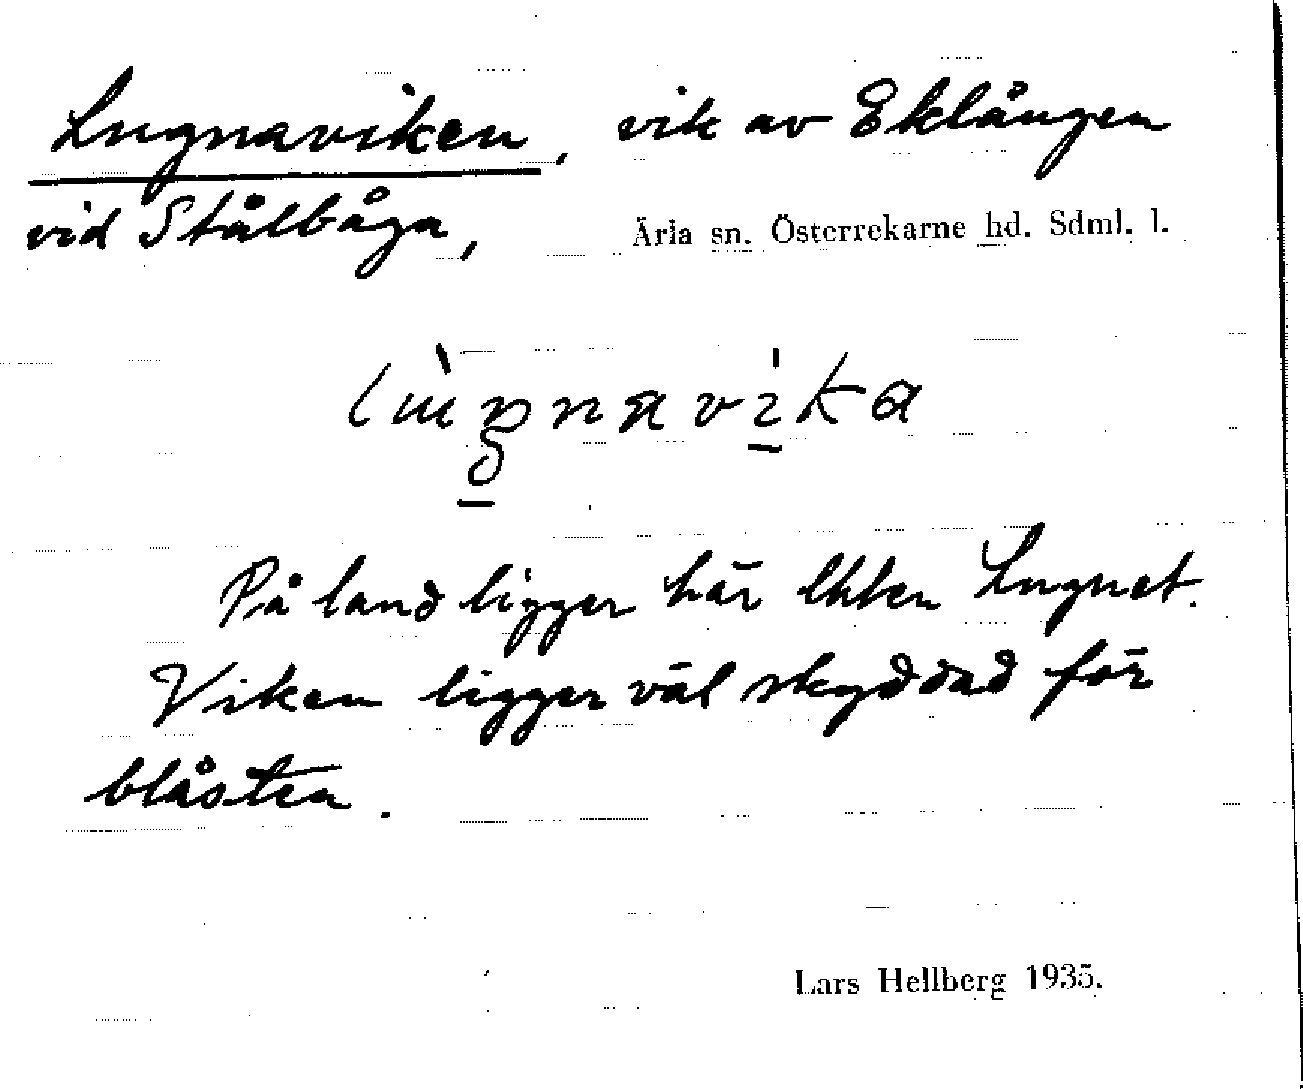 Lugnaviken, vik av Eklången
vid Stålbåga, Ärla sn. Österrekarne hd. Sdml. l.
På land ligger här lhten Lugnet.
Viken ligger väl skyddad för
blåsten.
Lars Hellberg 1935.